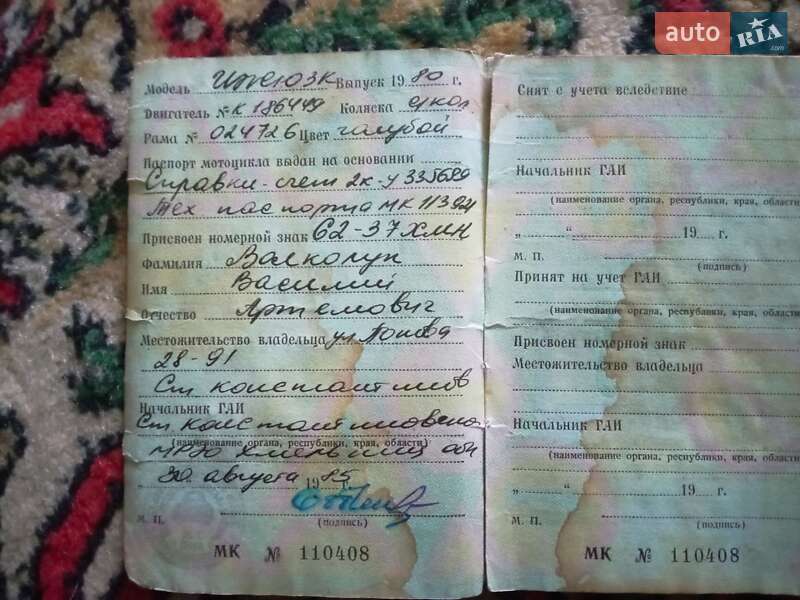 auto RIA .com
Модель ИЖЮЗК Выпуск 1980 г.
Двигатель № К 186449 Коляска
Рама № 024726 Цвет голубой
Паспорт мотоцикла выдан на основании
Справки-счет 2к-у 335689
Тех паспорта МК 113921
Присвоен номерной знак 62-37 ХМН
Фамилия
Имя Василий
Отчество Артемович
Местожительство владельца ул Попова
28-91
Ст константинов
Начальник ГАИ
Ст константиновского
(наименование органа, республики, края, области)
МРЭО
30 августа 1985
(подпись)
М. П.
МК № 110408
Снят с учета вследствие
Начальник ГАИ
(наименование органа, республики, края, области
„ “ 19 г.
М. П. (подпись)
Принят на учет ГАИ
(наименование органа, республики, края, области
Присвоен номерной знак
Местожительство владельца
Начальник ГАИ
(наименование органа, республики, края, области
„ “ 19 г.
М. П. (подпись)
МК № 110408